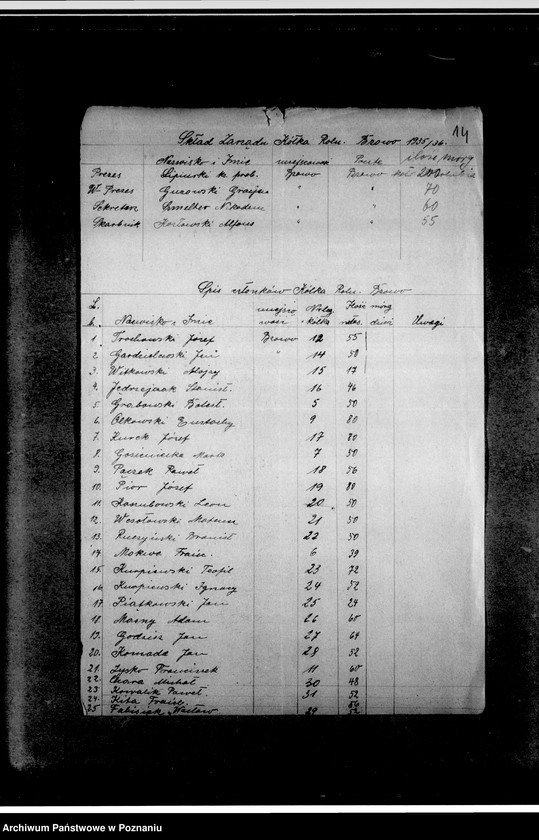 14
Skład Zarządu Kółka Roln. Browo 1935/36.
Nazwisko i Imię miejscowość Poczta ilość mórg
Prezes Lipinski k. prob. Browo Browo
W. Prezes Guzowski " " 70
Sekretarz Nikodem " " 60
Skarbnik Kozłowski Alfons " " 55
Spis członków Kółka Roln. Browo
L. b. Nazwisko i Imię miejscowość kółka Ilość mórg Uwagi
1 Trochowski Józef Browo 12 55
2 " 14 50
3. Witkowski Alojzy 15 17
4. Jędrzejczak Stanisł. 16 46
5. Grabowski Robert. 5 50
6. Olkowski Eustachy 9 80
7. Kurek Józef 17 80
8. 7 50
9. Paczek Paweł 18 56
10. Pior Józef 19 80
11. Kaszubowski Leon 20 50
12. Wesołowski Mateusz 21 50
13. Ruczyński 22 50
14. Mokwa Franc. 6 39
15. Knapiewski Teofil 23 72
16. Knapiewski Ignacy 24 52
17. Piątkowski Jan 25 24
18 Mazny Adam 26 60
19. Godzisz Jan 27 64
20. Komada Jan 28 52
21. Zysko Franciszek 11 60
22. Chara Michał 30 48
23 Kowalik Paweł 31 52
24. Kita Franc. 56
25 Fabisiak Wacław 29 52
Archiwum Państwowe w Poznaniu